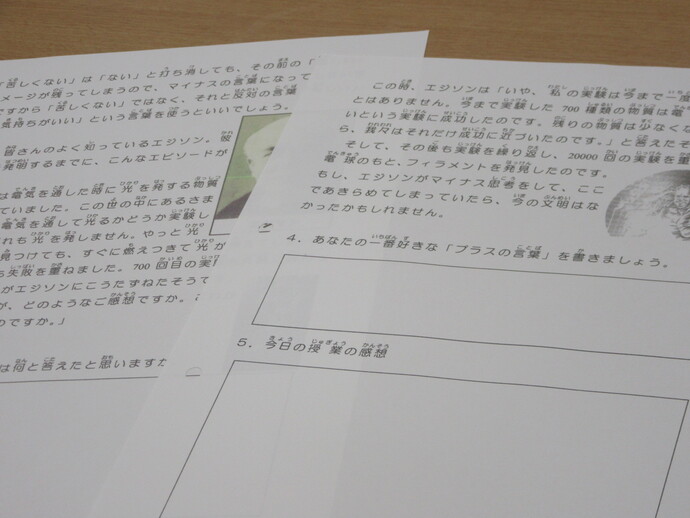 「苦しくない」は「ない」と打ち消しても、その前の「
メージが残ってしまうので、マイナスの言葉になって
ですから「苦しくない」ではなく、それと反対の言葉
気持ちがいい」という言葉を使うといいでしょう。
皆さんのよく知っているエジソン。彼
発明するまでに、こんなエピソードが
は電気を通した時に光を発する物質
ていました。この世の中にあるさま
電気を通して光るかどうか実験し
れも光を発しません。やっと光
見つけても、すぐに燃えつきて光が
失敗を重ねました。700回目の実
がエジソンにこうたずねたそうで
が、どのようなご感想ですか。
のですか。」
は何と答えたと思いますか
この時、エジソンは「いや、私の実験は今まで一度
とはありません。今まで実験した700種類の物質は電
いという実験に成功したのです。残りの物質は少なくな
ら、我々はそれだけ成功に近づいたのです。」と答えたそ
そして、その後も実験を繰り返し、20000回の実験を重
電球のもと、フィラメントを発見したのです。
もし、エジソンがマイナス思考をして、ここ
であきらめてしまっていたら、今の文明はな
かったかもしれません。
4．あなたの一番好きな「プラスの言葉」を書きましょう。
5．今日の授業の感想